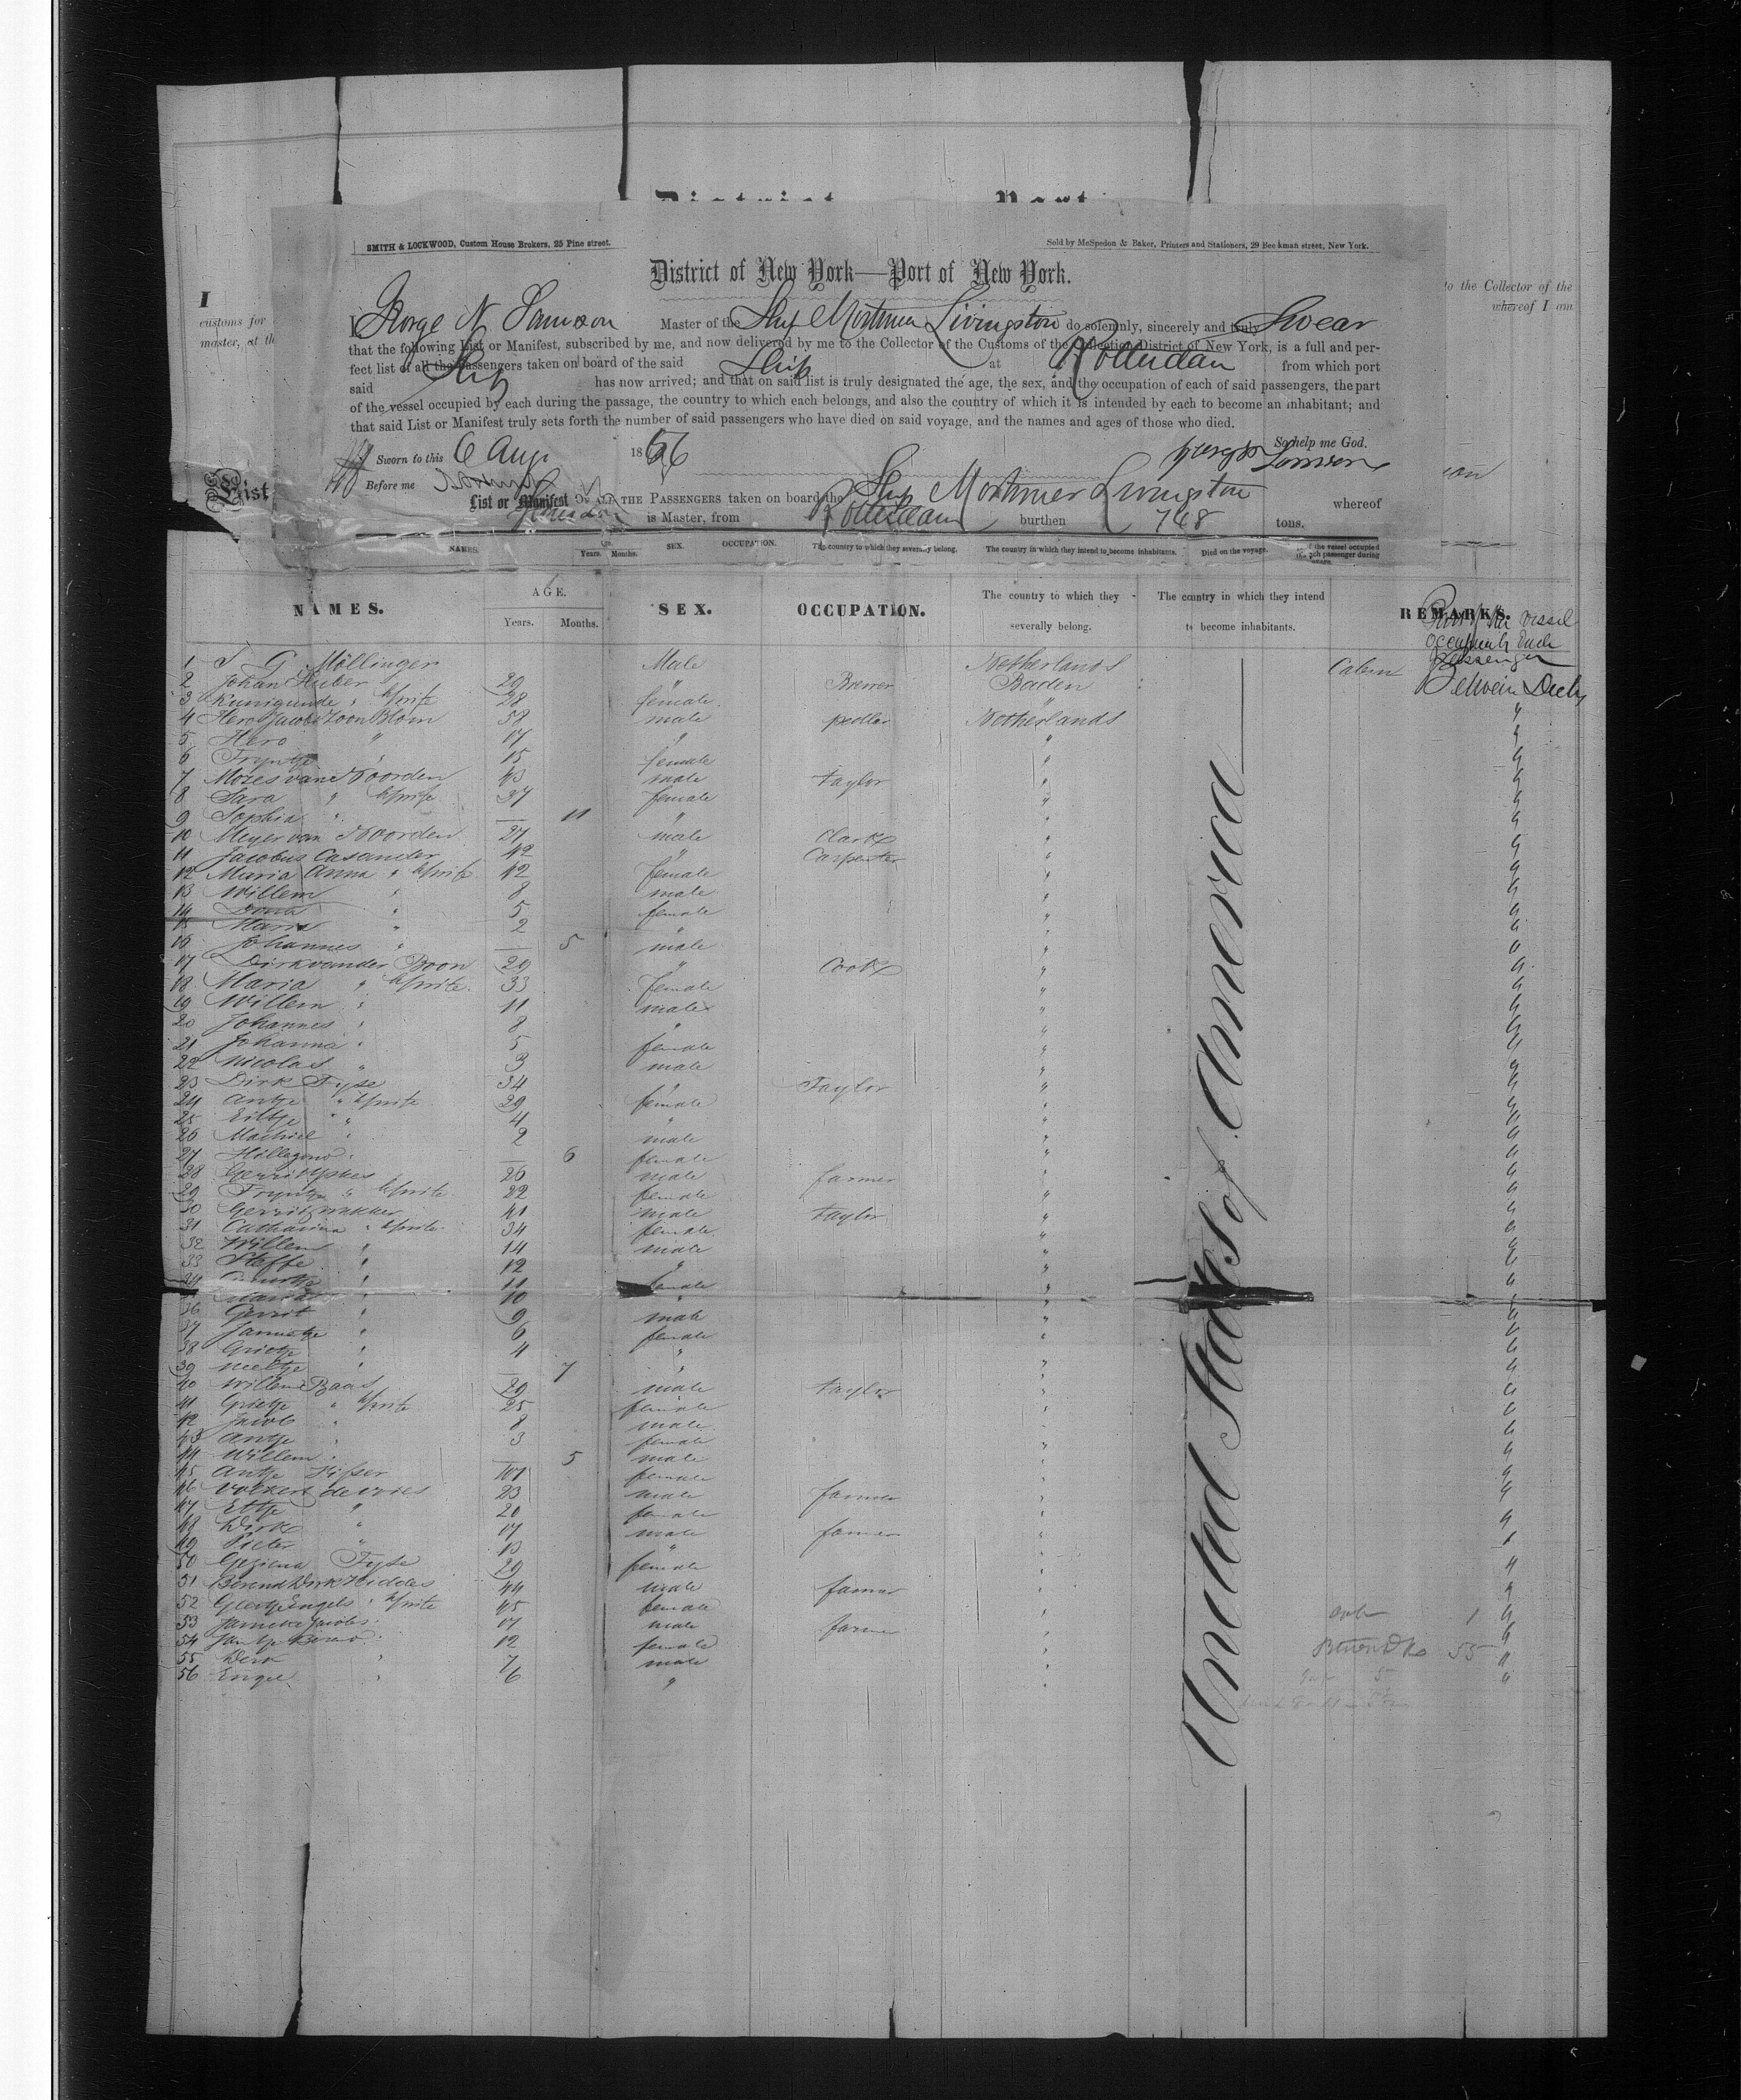 District Port
SMITH & LOCKWOOD, Custom House Brokers, 25 Pine street.
Sold by McSpedon & Baker, Printers and Stationers, 29 Beekman street, New York.
District of New York—Port of New York.
I
customs for
master, at th
to the Collector of the
whereof I am
I George N Samson Master of the Ship Mortimer Livingston do solemnly, sincerely and truly Swear
that the following List or Manifest, subscribed by me, and now delivered by me to the Collector of the Customs of the Collection District of New York, is a full and per-
fect list of all the passengers taken on board of the said Ship at Rotterdam from which port
said Ship has now arrived; and that on said list is truly designated the age, the sex, and the occupation of each of said passengers, the part
of the vessel occupied by each during the passage, the country to which each belongs, and also the country of which it is intended by each to become an inhabitant; and
that said List or Manifest truly sets forth the number of said passengers who have died on said voyage, and the names and ages of those who died.
So help me God.
Sworn to this 6 Aug 1856
Before me
List
List or Manifest OF ALL THE PASSENGERS taken on board the Ship Mortimer Livingston whereof
is Master, from Rotterdam burthen 748 tons.
NAMES. Years. Months. SEX. OCCUPATION. The country to which they severally belong. The country in which they intend to become inhabitants. Died on the voyage.
NAMES. AGE. Years. Months. SEX. OCCUPATION. The country to which they severally belong. The country in which they intend to become inhabitants. REMARKS.
Part of the vessel
occupied by Each
Passenger
1 G. Möllinger Male Netherlands Cabin
2 Johan Huber 29 " Brewer Baden Between Decks
3 Kunigunde " Wife 28 female "
4 Hero Jacobs Zoon Blom 58 male pedler Netherlands "
5 Hero " 17 " " "
6 Tryntje " 15 female " "
7 Mozes van Noorden 43 male Taylor " "
8 Sara " Wife 37 female " "
9 Sophia " — 11 " " "
10 Meyer van Noorden 27 male Clark " "
11 Jacobus Casander 42 " Carpenter " "
12 Maria Anna " Wife 42 female " "
13 Willem " 8 male " "
14 " 5 female " "
15 Maria " 2 " " "
16 Johannes " — 5 male " "
17 Dirk van der Boon 29 " Cook " "
18 Maria " Wife 33 female " "
19 Willem " 11 male " "
20 Johannes " 8 " " "
21 Johanna " 5 female " "
22 Nicolas " 3 male " "
23 Dirk Fyse 34 " Taylor " "
24 Antje " Wife 29 female " "
25 Eiltje " 4 " " "
26 Machiel " 2 male " "
27 " — 6 female " "
28 Gerrit 26 male farmer " "
29 Tryntje " Wife 22 female " "
30 Gerrit 41 male Taylor " "
31 Catharina " Wife 34 female " "
32 Willem " 14 male " "
33 Steffe " 12 " " "
34 " 11 female " "
" 10 " " "
36 Gerrit " 9 male " "
37 Jannetje " 6 female " "
38 Grietje " 4 " " "
39 Neeltje " — 7 " " "
40 Willem Baas 29 male Taylor " "
41 Grietje " Wife 25 female " "
42 Jacob " 8 male " "
43 Antje " 3 female " "
44 Willem " — 5 male " "
45 Antje female " "
46 Volkert de Vries 23 male farmer " "
47 Eltje " 20 female " "
48 Dirk " 17 male farmer " "
49 Pieter " 13 " " "
50 Geziena Fyse 29 female " "
51 Berend Dirk Hiddes 44 male farmer " "
52 Geertje Engels " Wife 45 female " "
53 Jacobs 17 male farmer " "
54 Jantje 12 female " "
55 Derk " 7 male " "
56 Engel " 6 " " "
1
55
United States of America